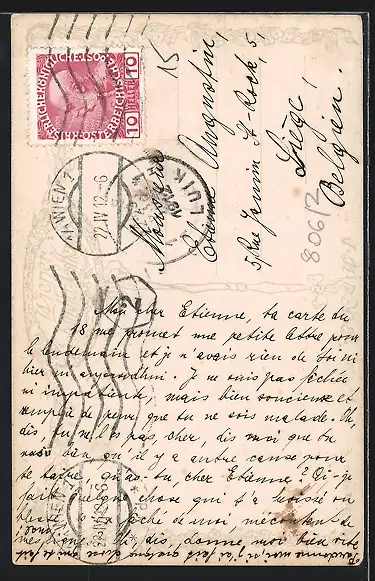 KAISERLICHE KÖNIGLICHE ÖSTERREICHISCHE POST
10 HELLER 10
1/1 WIEN 1
22.IV.12-6
LUIK
Monsieur
Etienne Augustin,
5, Rue Jonruin St-Roch, 5,
Liège!
Belgien.
15
8061/2
Mon cher Etienne, ta carte du
18 me promet une petite lettre pour
le lendemain et je n'avais rien de toi ni
hier ni aujourd'hui. Je ne suis pas fâchée
ni impatiente, mais bien soucieuse et
remplie de peur que tu ne sois malade. Oh,
dis, tu ne l'es pas, cher, dis moi que tu
vas bien ou il y a autre cause pour
te taire, qu'as-tu, cher Etienne? Ai-je
fait quelque chose qui t'a froissé ou
blessé, fâché de moi, mécontent de
mes lignes? Dis, donne moi bien vite